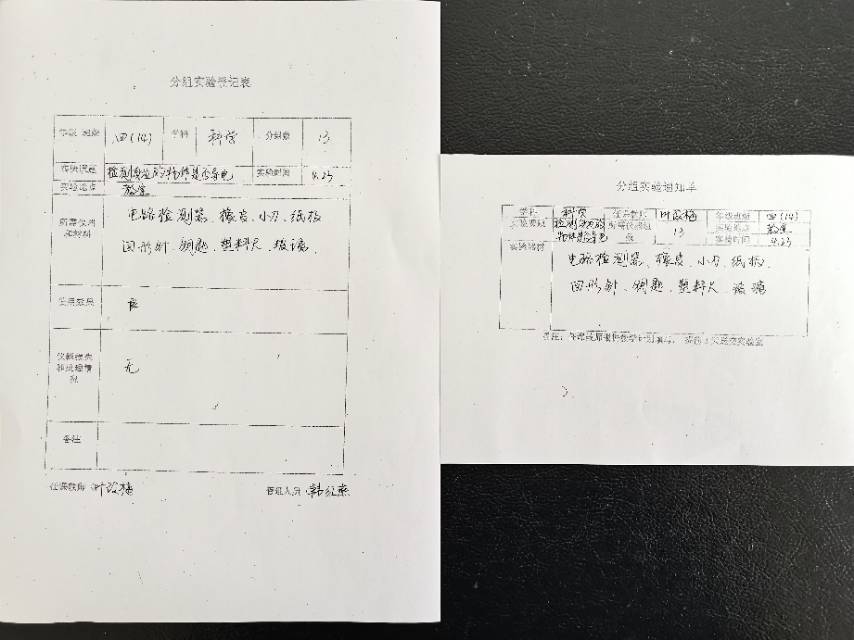 分组实验登记表
年级 班级 四(14) 学科 科学 分组数 13
实验课题 检测身边的物体是否导电 实验时间 4.23
实验地点 教室
所需仪器和材料
电路检测器、橡皮、小刀、纸板
回形针、钥匙、塑料尺、玻璃
实验效果 良
无
备注
任课教师 叶改梅 管理人员
分组实验通知单
学科 科学 任课教师 叶改梅 年级班级 四(14)
实验课题 检测身边的物体是否导电 所需仪器组数 13 实验地点 教室
实验时间 4.23
实验器材
电路检测器、橡皮、小刀、纸板
回形针、钥匙、塑料尺、玻璃